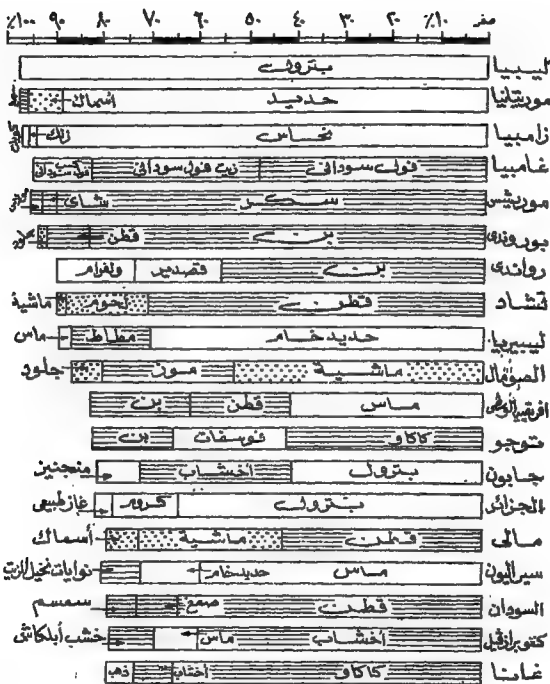 صفر ١٠٪ ٢٠ ٣٠ ٤٠ ٥٠ ٦٠ ٧٠ ٨٠ ٩٠ ١٠٠٪
ليبيا بترول
موريتانيا حديد اسماك
زامبيا نحاس زنك
غامبيا فول سودانى زيت فول سودانى كسب فول سودانى
موريشيس سكر شاى
بوروندى بن قطن جلود
رواندى بن قصدير ولفرام
تشاد قطن لحوم ماشية
ليبيريا حديد خام مطاط ماس
الصومال ماشية موز جلود
افريقيا الوسطى ماس قطن بن
توجو كاكاو فوسفات بن
جابون بترول أخشاب منجنيز
الجزائر بترول كروم غاز طبيعى
مالى قطن ماشية أسماك
سيراليون ماس حديد خام نوايات نخيل الزيت
السودان قطن صمغ سمسم
أخشاب ماس خشب أبلكاش
غانا كاكاو أخشاب ذهب